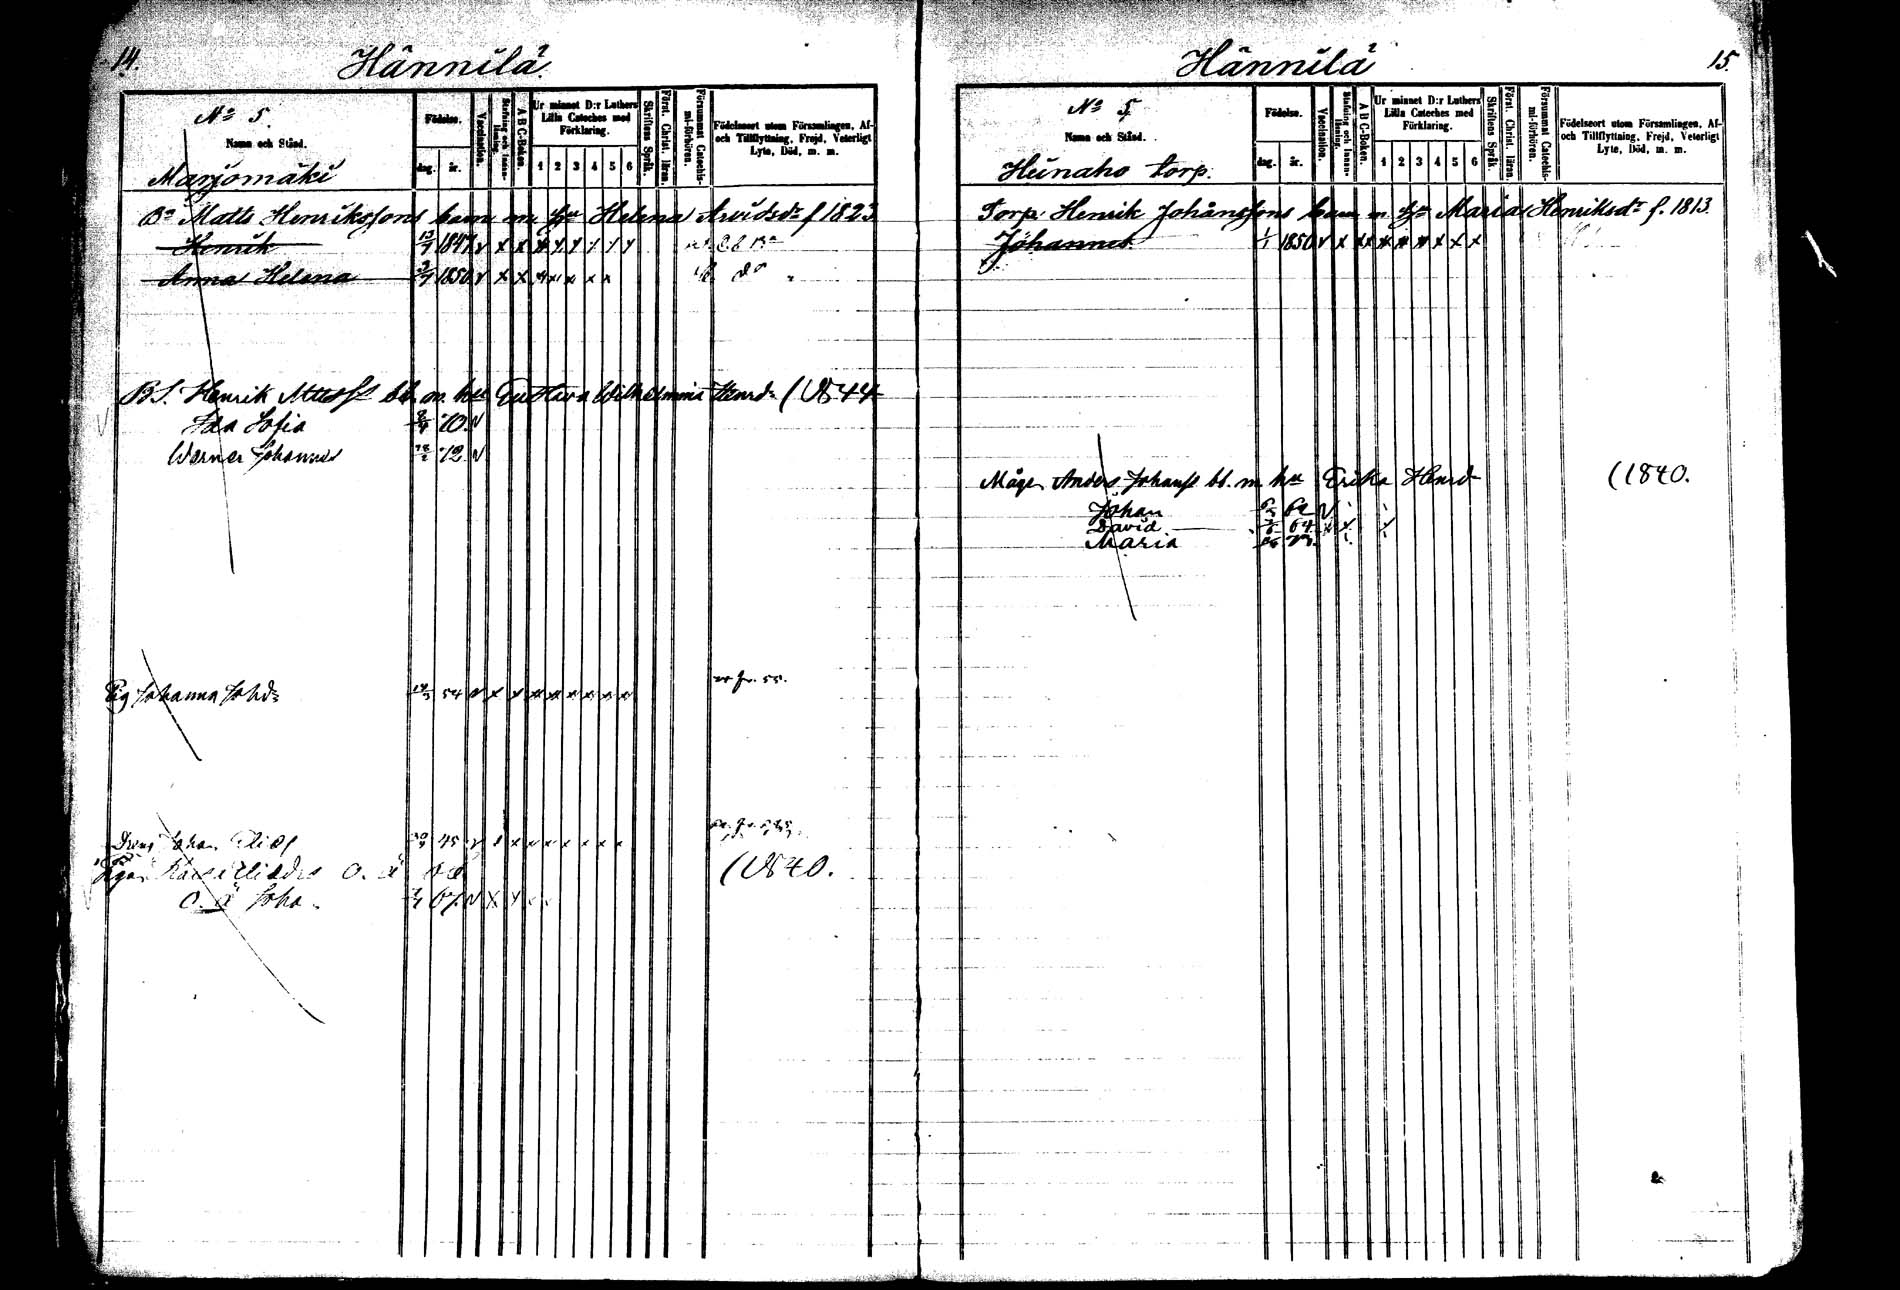 14.
Hännilä
No 5.
Namn och Stånd.
Födelse.
dag. år.
Vaccination.
Stafning och Innanläsning.
A B C-Boken.
Ur minnet D:r Luthers Lilla Cateches med Förklaring.
1 2 3 4 5 6
Skriftens Språk.
Först. Christ. läran.
Försummat Catechismi-förhören.
Födelseort utom Församlingen, Af- och Tillflyttning, Frejd, Veterligt Lyte, Död, m. m.
Marjomäki
Bn Matts Henrikssons barn m. hu Helena Arvidsdr f 1823
Henrik 13/7 1847 v x x x x x x x x
Anna Helena 1850 v x x x x x x x
BS. Henrik Mattss bb. m. hu Gustava Wilhelmina Henrd (1844
Ida Sofia 70 v
Werner Johannes 72 v
Pig Johanna Johd 54 v x x x x x x x x
Dreng Johan Elias 45 v x x x x x x x
(1840.
67 v x x
15.
Hännilä
No 5.
Namn och Stånd.
Födelse.
dag. år.
Vaccination.
Stafning och Innanläsning.
A B C-Boken.
Ur minnet D:r Luthers Lilla Cateches med Förklaring.
1 2 3 4 5 6
Skriftens Språk.
Först. Christ. läran.
Försummat Catechismi-förhören.
Födelseort utom Församlingen, Af- och Tillflyttning, Frejd, Veterligt Lyte, Död, m. m.
Heinaho torp.
Torp. Henrik Johanssons barn m. hu Maria Henriksdr f. 1813.
Johannes 1/1 1850 v x x x x x x x x
Måge Anders Johanss bb. m. hu Erika Henrd (1840.
Johan 62 v
David 64
Maria